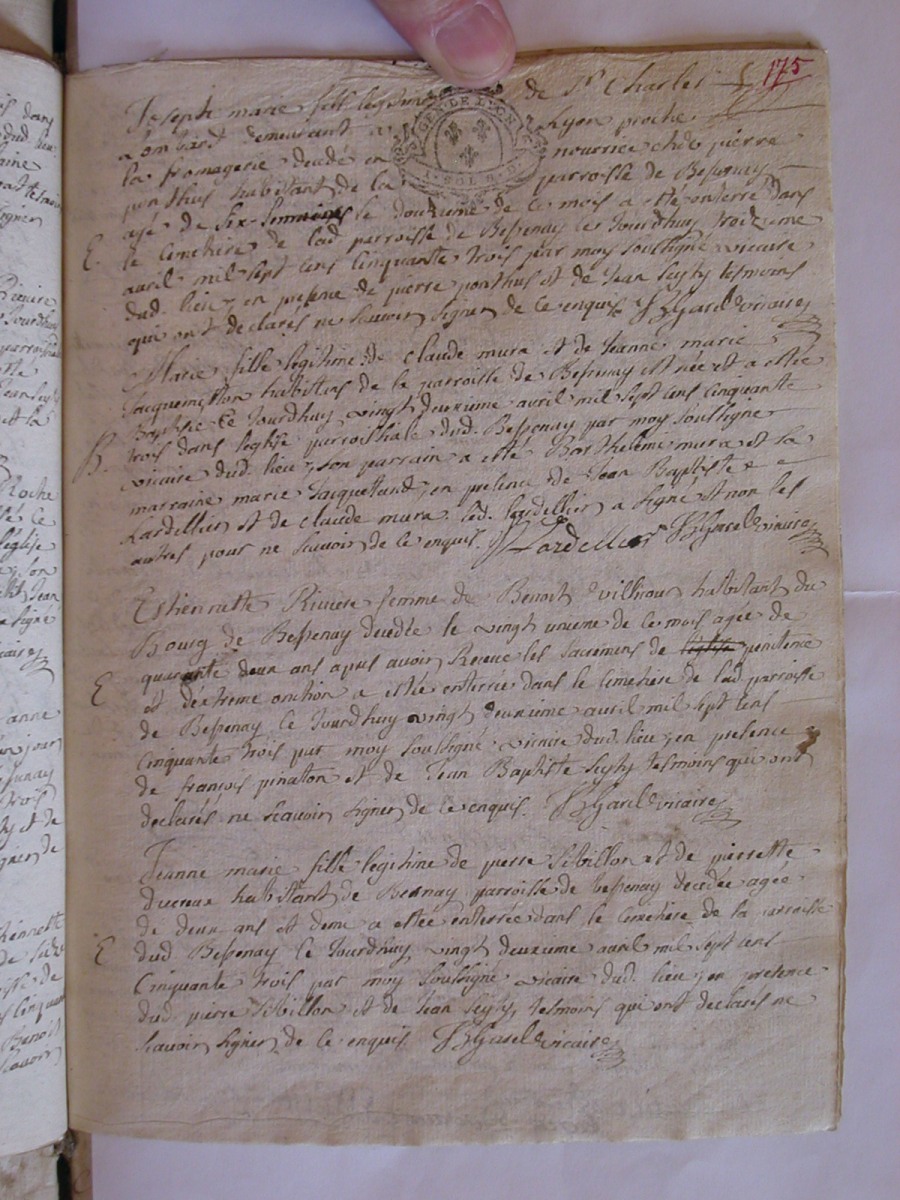 175
Joseph marie fils legitime de St Charles
Lombard demeurant a Lyon proche
la fromagerie decedé en nourrice chés pierre
ponthus habitant de la parroisse de Bessenay
agé de Six Semaines le douzieme de ce mois a esté enterré dans
E. le cimetiere de lad. parroisse de Bessenay ce Jourdhuy treizieme
avril mil sept cens Cinquante trois par moy soussigné vicaire
dud. lieu, en presence de pierre ponthus et de Jean Scyty tesmoins
qui ont declarés ne scavoir signer de ce enquis JHGarel vicaire
Marie fille legitime de claude mura et de Jeanne marie
Jacquemetton habitans de la parroisse de Bessenay est née et a estée
Baptisée ce Jourdhuy vingt deuxieme avril mil sept cens cinquante
B. trois dans leglise parroissiale dud. Bessenay par moy soussigné
vicaire dud. lieu, son parrain a esté Barthelemé mura et la
marraine marie Jacquettand, en presence de Jean Baptiste
Lardellier et de claude mura. led. Lardellier a signé et non les
autres pour ne scavoir de ce enquis. Lardellier JHGarel vicaire
Estiennette Riviere femme de Benoit habitant du
Bourg de Bessenay decedée le vingt unieme de ce mois agée de
E quarante deux ans apres avoir Receue les sacremens de penitence
et dextreme onction a estée enterrée dans le cimetiere de lad. parroisse
de Bessenay ce Jourdhuy vingt deuxieme avril mil sept cens
Cinquante trois par moy soussigné vicaire dud. lieu, en presence
de françois pinaton et de Jean Baptiste Scyty tesmoins qui ont
declarés ne scavoir signer de ce enquis. JHGarel vicaire
Jeanne marie fille legitime de pierre et de pierrette
habitant de parroisse de bessenay decedée agée
de deux ans et demi a estée enterrée dans le cimetiere de la parroisse
E dud Bessenay ce Jourdhuy vingt deuxieme avril mil sept cens
Cinquante trois par moy soussigné vicaire dud. lieu, en presence
dud. pierre et de Jean Scyty, tesmoins qui ont declarés ne
scavoir signer de ce enquis JHGarel vicaire